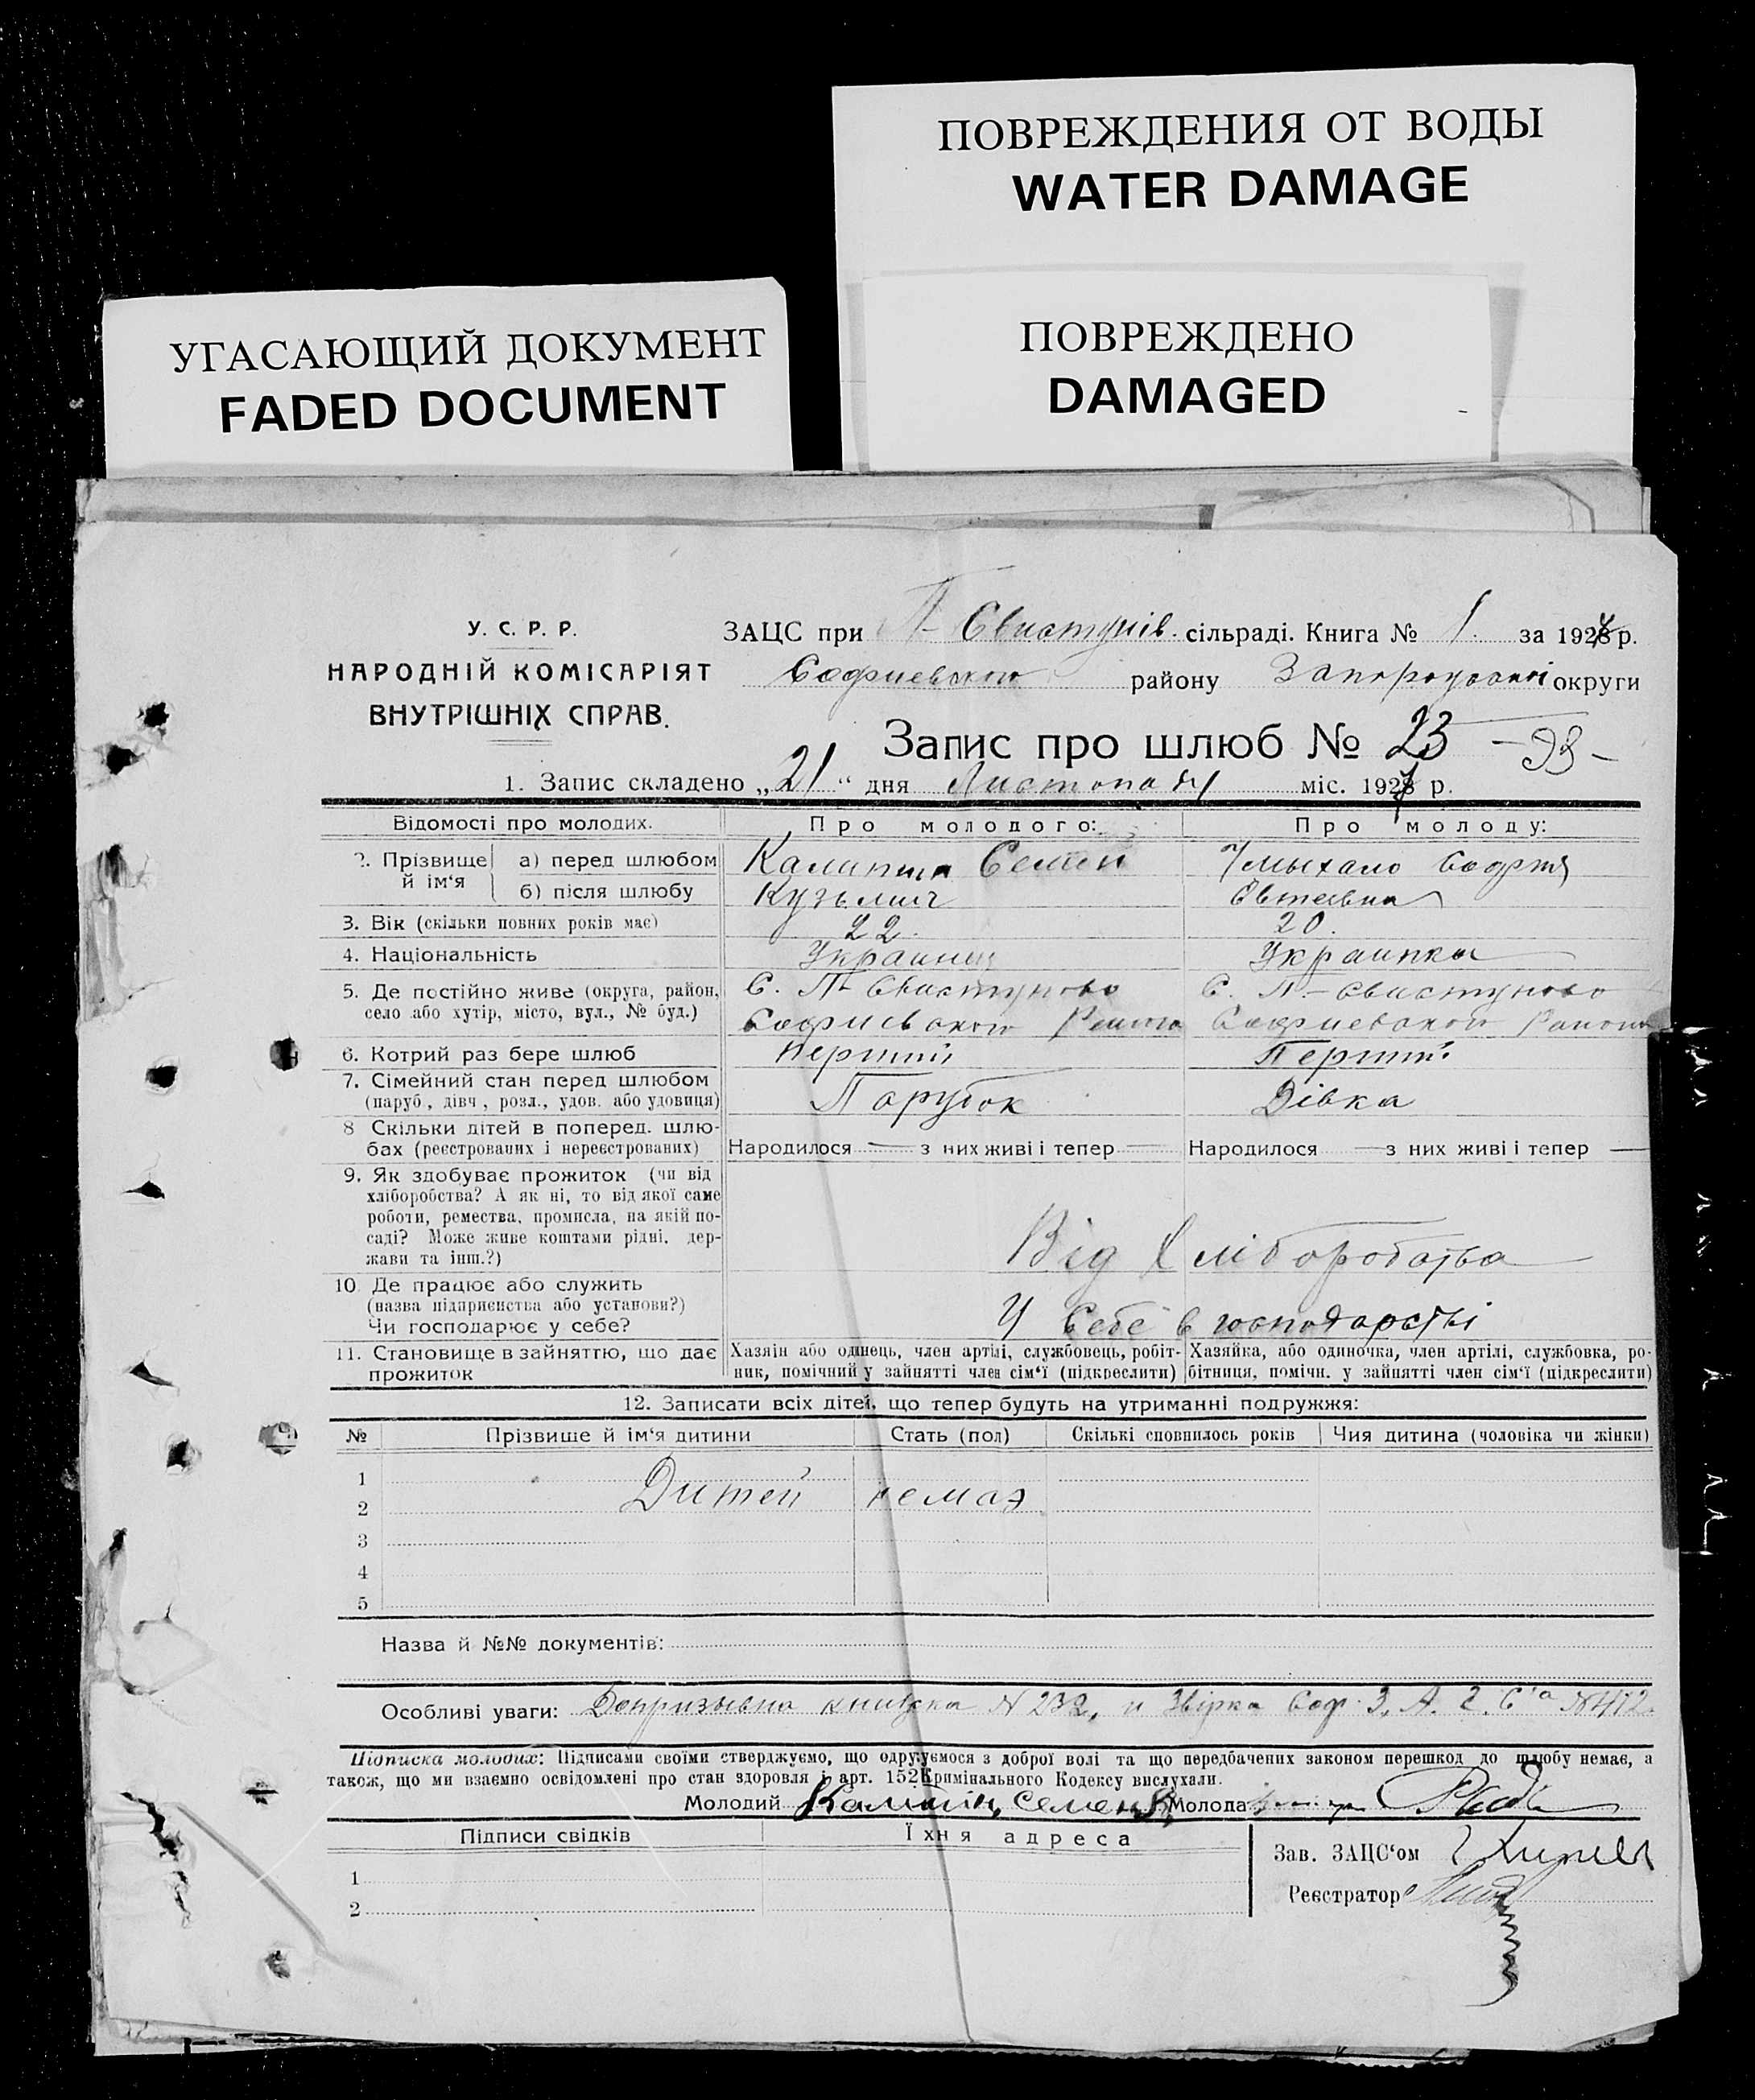 ПОВРЕЖДЕНИЯ ОТ ВОДЫ
WATER DAMAGE
УГАСАЮЩИЙ ДОКУМЕНТ
FADED DOCUMENT
ПОВРЕЖДЕНО
DAMAGED
У. С. Р. Р.
НАРОДНІЙ КОМІСАРІЯТ
ВНУТРІШНІХ СПРАВ.
ЗАЦС при П- Свистунів. сільраді. Книга № 1. за 1927 р.
Софиевского району Запорозької округи
Запис про шлюб № 23 - 93 -
1. Запис складено „21“ дня Листопаду міс. 1927 р.
Відомості про молодих. Про молодого: Про молоду:
2. Прізвище й ім‘я а) перед шлюбом Семен Софія
б) після шлюбу Кузьмич
3. Вік (скільки повних років має) 22. 20.
4. Національність Украинец Украинка
5. Де постійно живе (округа, район, С. П- Свистуново С. П.- Свистуново
село або хутір, місто, вул., № буд.) Софиевского Району Софиевского Району
6. Котрий раз бере шлюб Перший Перший
7. Сімейний стан перед шлюбом
(паруб, дівч, розл., удов. або удовиця) Парубок Дівка
8 Скільки дітей в поперед. шлю-
бах (реєстрованих і нереєстрованих) Народилося — з них живі і тепер — Народилося — з них живі і тепер —
9. Як здобуває прожиток (чи від
хліборобства? А як ні, то від якої саме
роботи, ремества, промисла, на якій по-
саді? Може живе коштами рідні, дер-
жави та інш.?) Від Хліборобства
10 Де працює або служить
(назва підприємства або установи?)
Чи господарює у себе? У Себе в господарстві
11. Становище в зайняттю, що дає Хазяїн або одинець, член артілі, службовець, робіт- Хазяйка, або одиночка, член артілі, службовка, ро-
прожиток ник, помічний у зайнятті член сім‘ї (підкреслити) бітниця, помічн. у зайнятті член сім‘ї (підкреслити)
12. Записати всіх дітей, що тепер будуть на утриманні подружжя:
№ Прізвище й ім‘я дитини Стать (пол) Скількі сповнилось років Чия дитина (чоловіка чи жінки)
1
2 Дитей немає
3
4
5
Назва й №№ документів:
Особливі уваги: Допризывна книжка N 232, и Звірка Соф. З. А. Г. С'а №412.
Підписка молодих: Підписами своїми стверджуємо, що одружуємося з доброї волі та що передбачених законом перешкод до шлюбу немає, а
також, що ми взаємно освідомлені про стан здоровля і арт. 152 Кримінального Кодексу вислухали.
Молодий Семен Молода
Підписи свідків Їхня адреса
Зав. ЗАЦС‘ом
1
Реєстратор
2